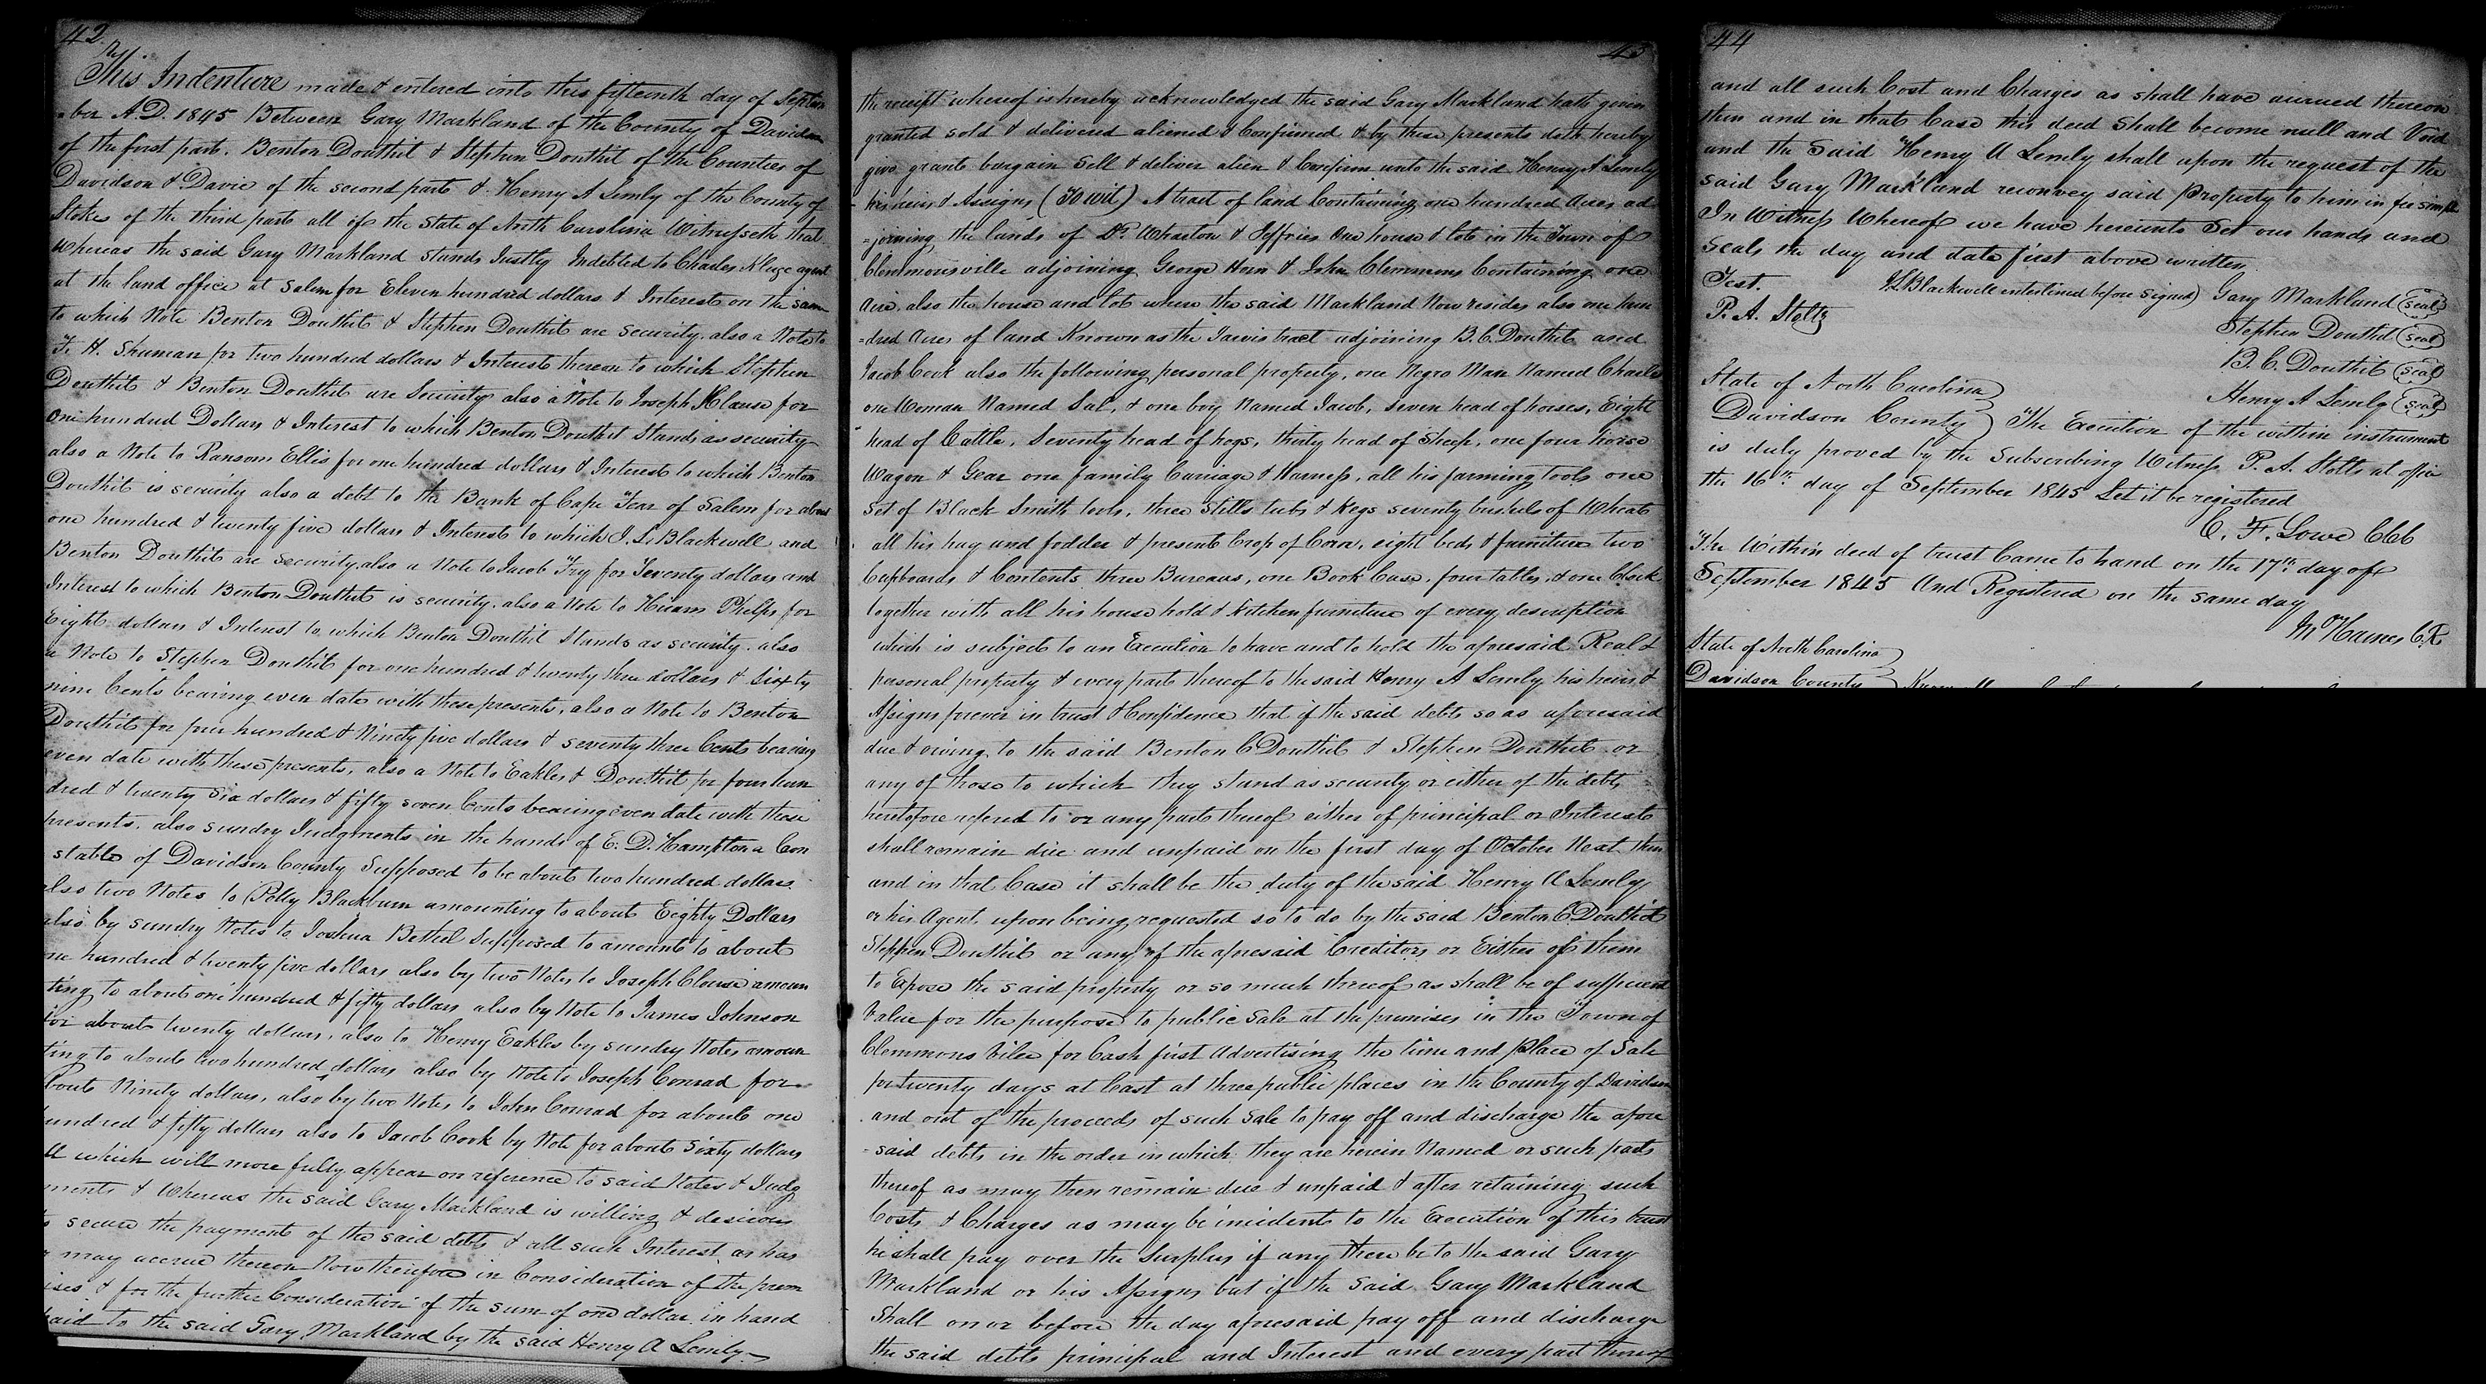 42
This Indenture made & entered into this fifteenth day of Septem
=ber A.D. 1845 Between Gary Markland of the County of Davidson
of the first part. Benton Douthit & Stephen Douthit of the Counties of
Davidson & Davie of the second part & Henry A Lemly of the County of
Stokes of the third part all of the State of North Carolina Witnesseth that
whereas the said Gary Markland stands Justly Indebted to Charles Kluge agent
at the land office at Salem for Eleven hundred dollars & Interest on the same
to which Note Benton Douthit & Stephen Douthit are security, also a Note to
F. H. Shuman for two hundred dollars & Interest thereon to which Stephen
Douthit & Benton Douthit are Security also a Note to Joseph Klause for
One hundred Dollars & Interest to which Benton Douthit Stands as security
also a Note to Ransom Ellis for one hundred dollars & Interest to which Benton
Douthit is security also a debt to the Bank of Cape Fear of Salem for about
one hundred & twenty five dollars & Interest to which J. L. Blackwell and
Benton Douthit are security, also a Note to Jacob Fry for Seventy dollars and
Interest to which Benton Douthit is security. also a Note to Hiram Phelps for
Eight dollars & Interest to which Benton Douthit Stands as security. also
a Note to Stephen Douthit for one hundred & twenty three dollars & Sixty
nine Cents bearing even date with these presents, also a Note to Benton
Douthit for four hundred & Ninety five dollars & seventy three Cents bearing
even date with these presents, also a Note to Eakles & Douthit for four hun
dred & twenty Six dollars & fifty seven Cents bearing even date with these
presents. also sundry Judgments in the hands of E. D. Hampton a Con
stable of Davidson County Supposed to be about two hundred dollars.
also two Notes to Polly Blackburn amounting to about Eighty Dollars
also by sundry Notes to Joshua Bethel Supposed to amount to about
one hundred & twenty five dollars also by two Notes to Joseph Clouse amoun
ting to about one hundred & fifty dollars also by Note to James Johnson
for about twenty dollars, also to Henry Eakles by sundry Notes amoun
ting to about two hundred dollars also by Note to Joseph Conrad for
bout Ninety dollars, also by two Notes to John Conrad for about one
undred & fifty dollars also to Jacob Cook by Note for about Sixty dollars
ll which will more fully appear on reference to said Notes & Judg
ments & Whereas the said Gary Markland is willing & desirous
o secure the payment of the said debts & all such Interest as has
r may accrue thereon Now therefore in Consideration of the prem
ises & for the further Consideration of the sum of one dollar in hand
paid to the said Gary Markland by the said Henry A Lemly
43
the receipt whereof is hereby acknowledged the said Gary Markland hath given
granted sold & delivered aliened & Confirmed & by these presents doth hereby
give grant bargain Sell & deliver alien & Confirm unto the said Henry A Lemly
his heirs & Assigns (To wit) A tract of land Containing one hundred Acres ad
=joining the lands of Dr. Wharton & Jeffries One house & lot in the Town of
Clemmonsville adjoining George Horn & John Clemmons Containing one
Acre, also the house and lot where the said Markland Now resides also one hun
=dred Acres of land Known as the Jarvis tract adjoining B. C. Douthit and
Jacob Cook also the following personal property, one Negro Man Named Charles
one Woman Named Sal, & one boy Named Jacob, seven head of horses, Eight
head of Cattle, Seventy head of hogs, thirty head of Sheep, one four horse
Wagon & Gear one family Carriage & Harness, all his farming tools one
Set of Black Smith tools, three Stills tubs & kegs seventy bushels of Wheat
all his hay and fodder & present Crop of Corn, eight beds & furniture two
Cupboards & Contents three Bureaus, one Book Case, four tables, & one Clock
together with all his house hold & kitchen furniture of every description
which is subject to an Execution to have and to hold the aforesaid Real &
personal property & every part thereof to the said Henry A Lemly his heirs &
Assigns forever in trust & Confidence that if the said debts so as aforesaid
due & owing to the said Benton C Douthit & Stephen Douthit or
any of those to which they stand as security or either of the debts
heretofore refered to or any part thereof either of principal or Interest
shall remain due and unpaid on the first day of October Next then
and in that Case it shall be the duty of the said Henry A Lemly
or his Agent upon being requested so to do by the said Benton C Douthit
Stephen Douthit or any of the aforesaid Creditors or Either of them
to Expose the said property or so much thereof as shall be of sufficient
Value for the purpose to public Sale at the premises in the Town of
Clemmons Vilee for Cash first Advertising the time and place of Sale
for twenty days at least at three public places in the County of Davidson
and out of the proceeds of such Sale to pay off and discharge the afore
=said debts in the order in which they are herein Named or such parts
thereof as may then remain due & unpaid & after retaining such
Costs & Charges as may be incident to the Execution of this trust
he shall pay over the Surplus if any there be to the said Gary
Markland or his Assigns but if the Said Gary Markland
Shall on or before the day aforesaid pay off and discharge
the said debts principal and Interest and every part thereof
44
and all such Cost and Charges as shall have accrued thereon
then and in that Case this deed Shall become null and Void
and the Said Henry A Lemly shall upon the request of the
said Gary Markland reconvey said Property to him in fee simple
In Witness Whereof we have hereunto Set our hands and
Seals the day and date first above written.
Test. JL Blackwell enterlined before signed) Gary Markland (Seal)
P. A. Stoltz Stephen Douthit (seal)
B. C. Douthit (seal)
State of North Carolina) Henry A Lemly (seal)
Davidson County) The Execution of the within instrument
is duly proved by the Subscribing Witness P. A. Stolts at office
the 16th day of September 1845 Let it be registered
C. F. Lowe CCC
The Within deed of trust Came to hand on the 17th day of
September 1845 And Registered on the same day
Haines C.R.
State of North Carolina)
Davidson County